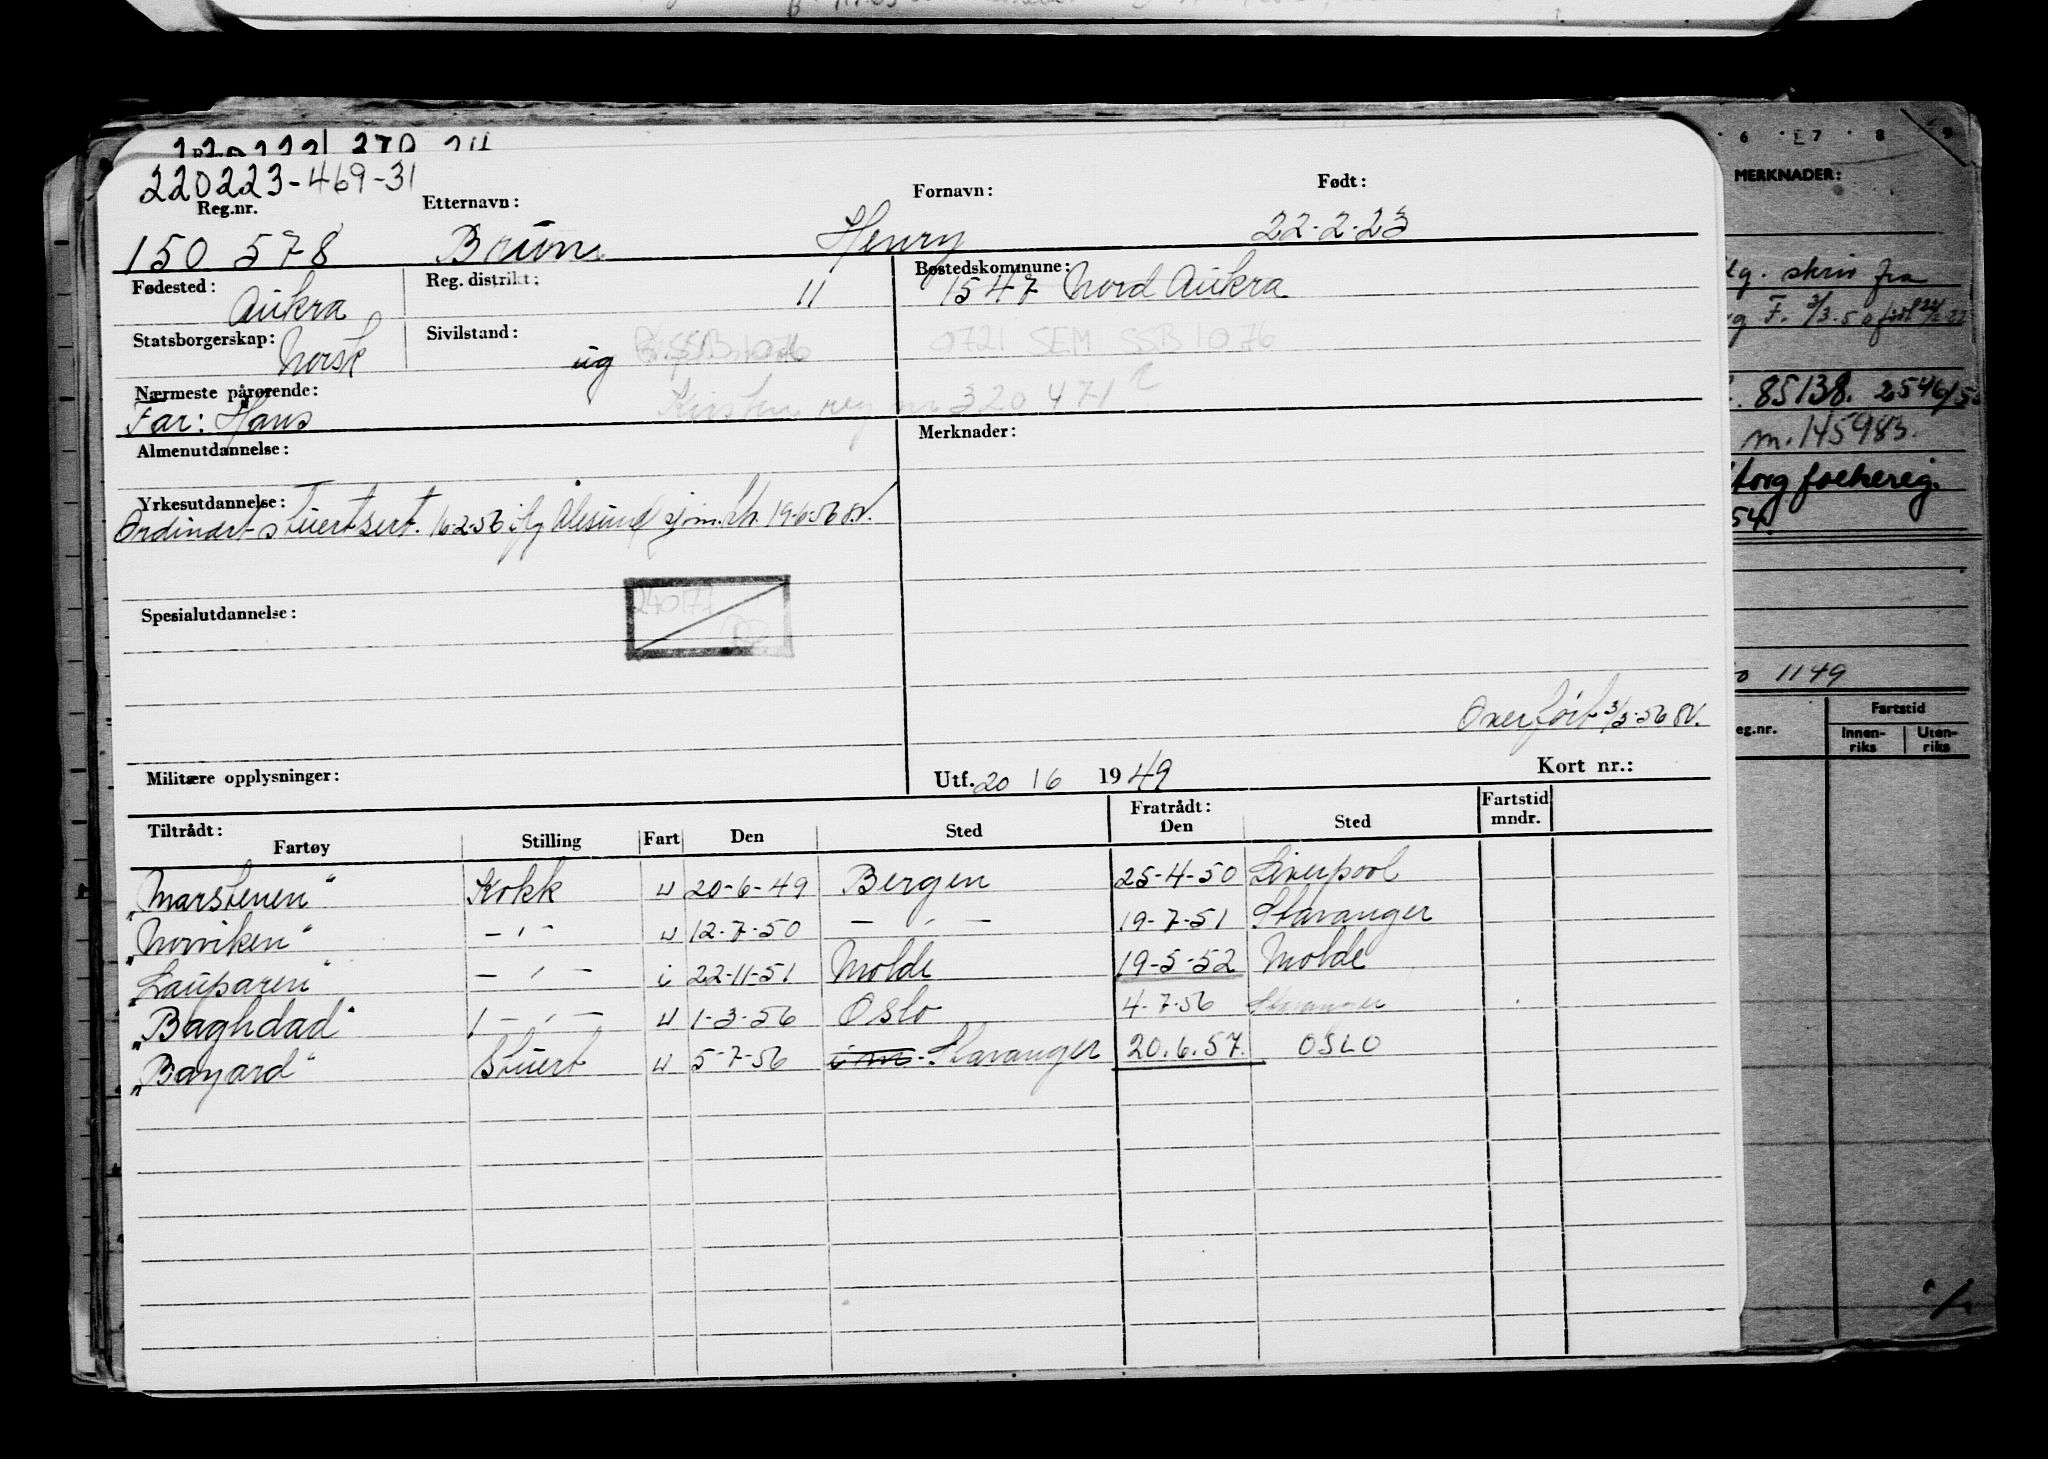 220223-469-31
Reg.nr. Etternavn: Fornavn: Født:
150 578 Brun Henry 22-2-23
Fødested: Reg. distrikt: Bostedskommune:
Aukra 11 1547 Nord Aukra
Statsborgerskap: Sivilstand:
Norsk ug SSB 1076 0721 SEM SSB 1076
Nærmeste pårørende:
Far: Hans Kirsten reg nr 320 471
Almenutdannelse: Merknader:
Yrkesutdannelse:
Ordinært stuertsert. 16-2-56 Ålesund 19-6-56
Spesialutdannelse:
240177
Overført 3/3-56
Militære opplysninger: Utf. 20 / 6 1949 Kort nr.:
Tiltrådt: Fratrådt: Fartstid
Fartøy Stilling Fart Den Sted Den Sted mndr.
"Marstenen" Kokk u 20-6-49 Bergen 25-4-50 Liverpool
"Norviken" - " - u 12-7-50 - " - 19-7-51 Stavanger
"Lauparen" - " - i 22-11-51 Molde 19-5-52 Molde
"Baghdad" - " - u 1-3-56 Oslo 4-7-56 Stavanger
"Bayard" Stuert u 5-7-56 Stavanger 20.6.57. OSLO
6 7 8 9
MERKNADER:
skriv fra
F. 3/3-50
85138. 2546/5
m. 145983.
54.
1149
eg.nr. Fartstid
Innen-riks Uten-riks